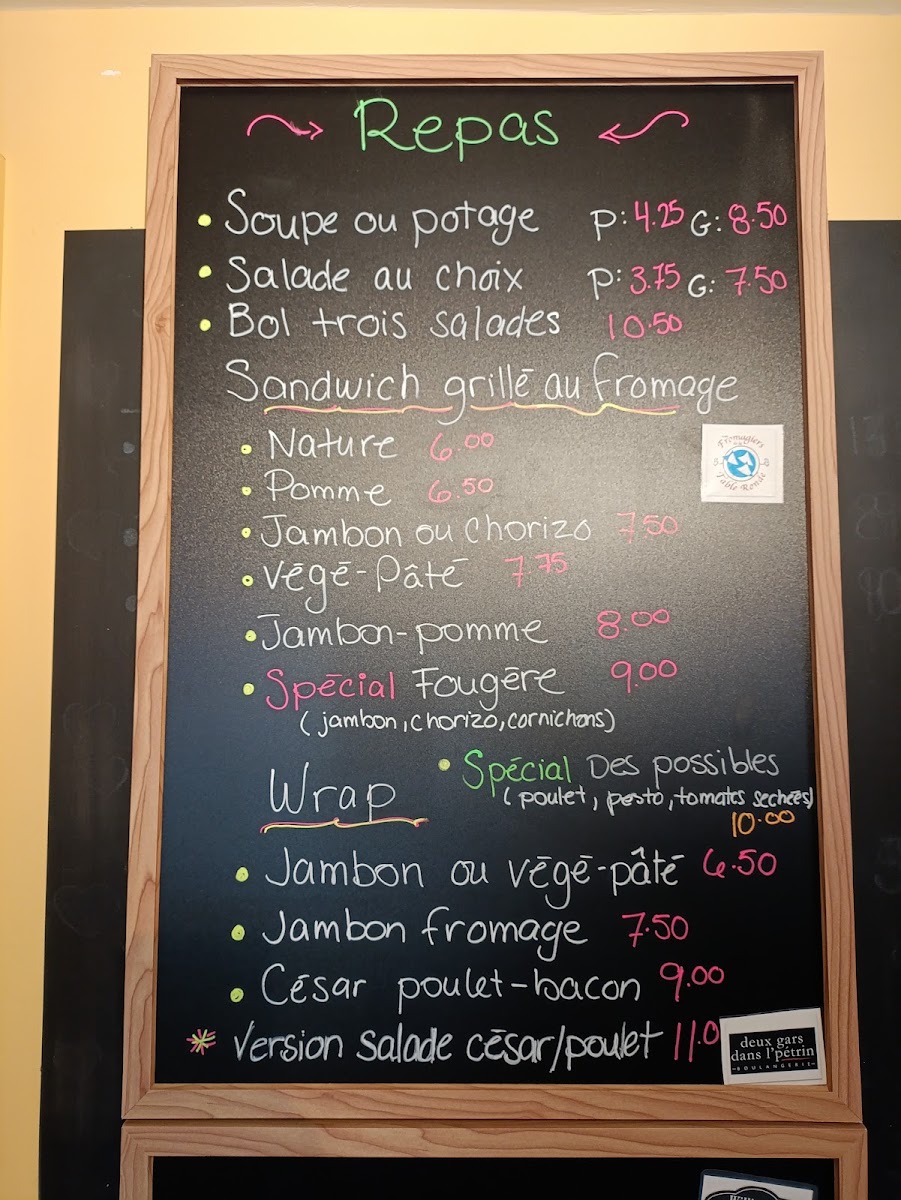 Repas
Soupe ou potage P: 4.25 G: 8.50
Salade au choix P: 3.75 G: 7.50
Bol trois salades 10.50
Sandwich grillé au fromage
Nature 6.00
Pomme 6.50
Jambon ou chorizo 7.50
Végé-Pâté 7.75
Jambon-pomme 8.00
Spécial Fougère 9.00
(jambon, chorizo, cornichons)
Spécial Des possibles
(poulet, pesto, tomates sechées)
10.00
Wrap
Jambon ou végé-pâté 6.50
Jambon fromage 7.50
César poulet-bacon 9.00
* Version salade césar/poulet 11.0
Fromagiers
Table Ronde
deux gars
dans l'pétrin
BOULANGERIE